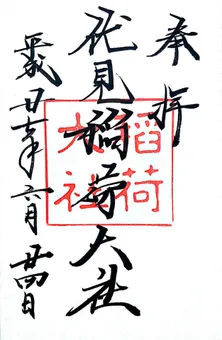 奉拝
伏見稲荷大社
平成廿六年六月廿四日
稲荷
大社